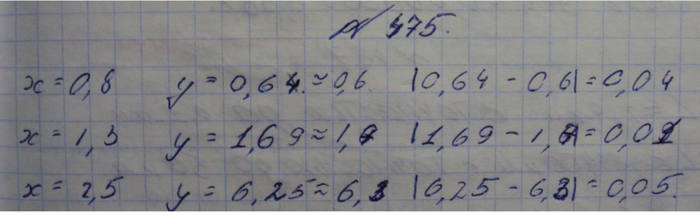 № 475.
x = 0,8 y = 0,64 ≈ 0,6. |0,64 - 0,6| = 0,04
x = 1,3 y = 1,69 ≈ 1,7 |1,69 - 1,7| = 0,01
x = 2,5 y = 6,25 ≈ 6,3 |6,25 - 6,3| = 0,05.